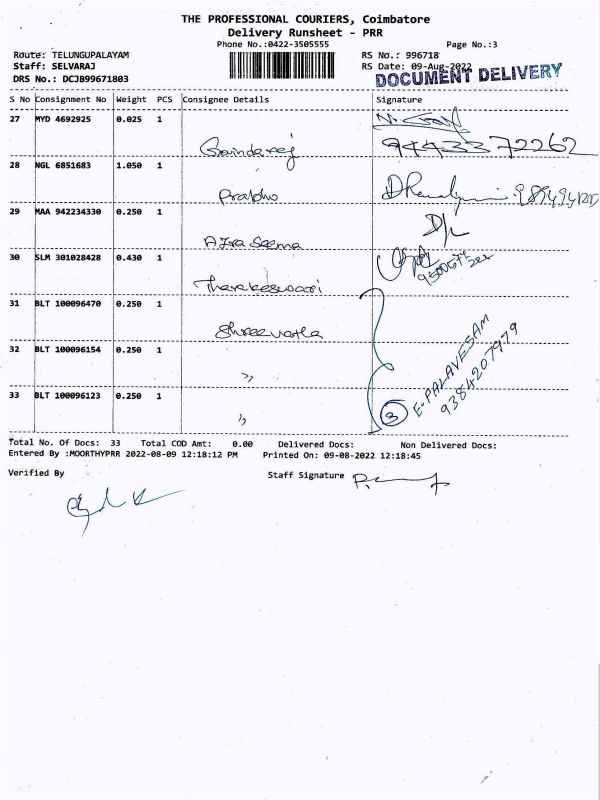 THE PROFESSIONAL COURIERS, Coimbatore
Delivery Runsheet - PRR
Phone No.:0422-3505555
Page No.:3
Route: TELUNGUPALAYAM
RS No.: 996718
Staff: SELVARAJ
RS Date: 09-Aug-2022
DRS No.: DCJB99671803
DOCUMENT DELIVERY
S No Consignment No Weight PCS Consignee Details Signature
27 MYD 4692925 0.025 1
Govindaraj 9443372262
28 NGL 6851683 1.050 1
Prabhu
29 MAA 942234330 0.250 1
Azra Seema
30 SLM 301028428 0.430 1
Tharakeswari
31 BLT 100096470 0.250 1
Shreevatla
32 BLT 100096154 0.250 1
"
33 BLT 100096123 0.250 1
"
3 E. PALAVESAM
9384207979
Total No. Of Docs: 33 Total COD Amt: 0.00 Delivered Docs: Non Delivered Docs:
Entered By :MOORTHYPRR 2022-08-09 12:18:12 PM Printed On: 09-08-2022 12:18:45
Verified By Staff Signature